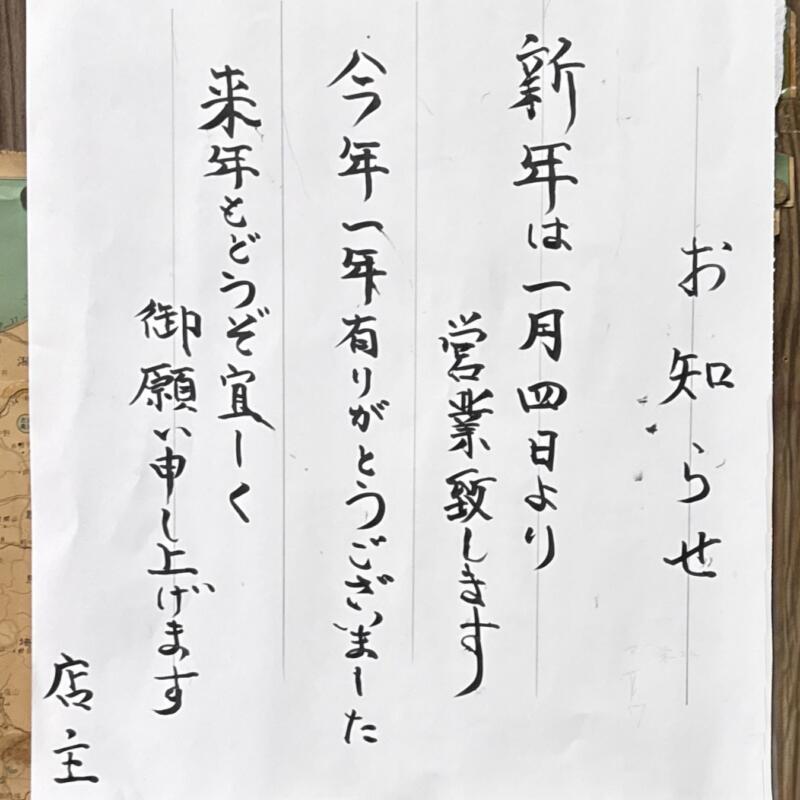 お知らせ
新年は一月四日より
営業致します
今年一年有りがとうございました
来年もどうぞ宜しく
御願い申し上げます
店主